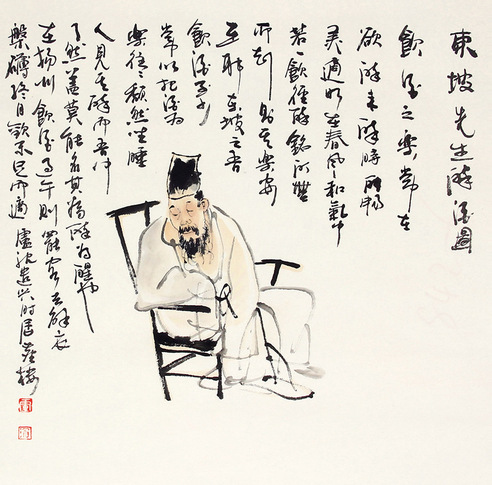 東坡先生醉酒圖
飲酒之樂常在
欲醉未醉時酣暢
美適如在春風和氣中
若一飲徑醉銘酊無
所知則其樂安
在耶東坡云吾
飲酒至少
常以把酒為
樂往往頹然坐睡
人見其醉而吾中
了然蓋莫能名其為醉為醒也
在揚州飲酒過午則罷客去解衣
槃礴終日歡不足而適 遣興时居樓